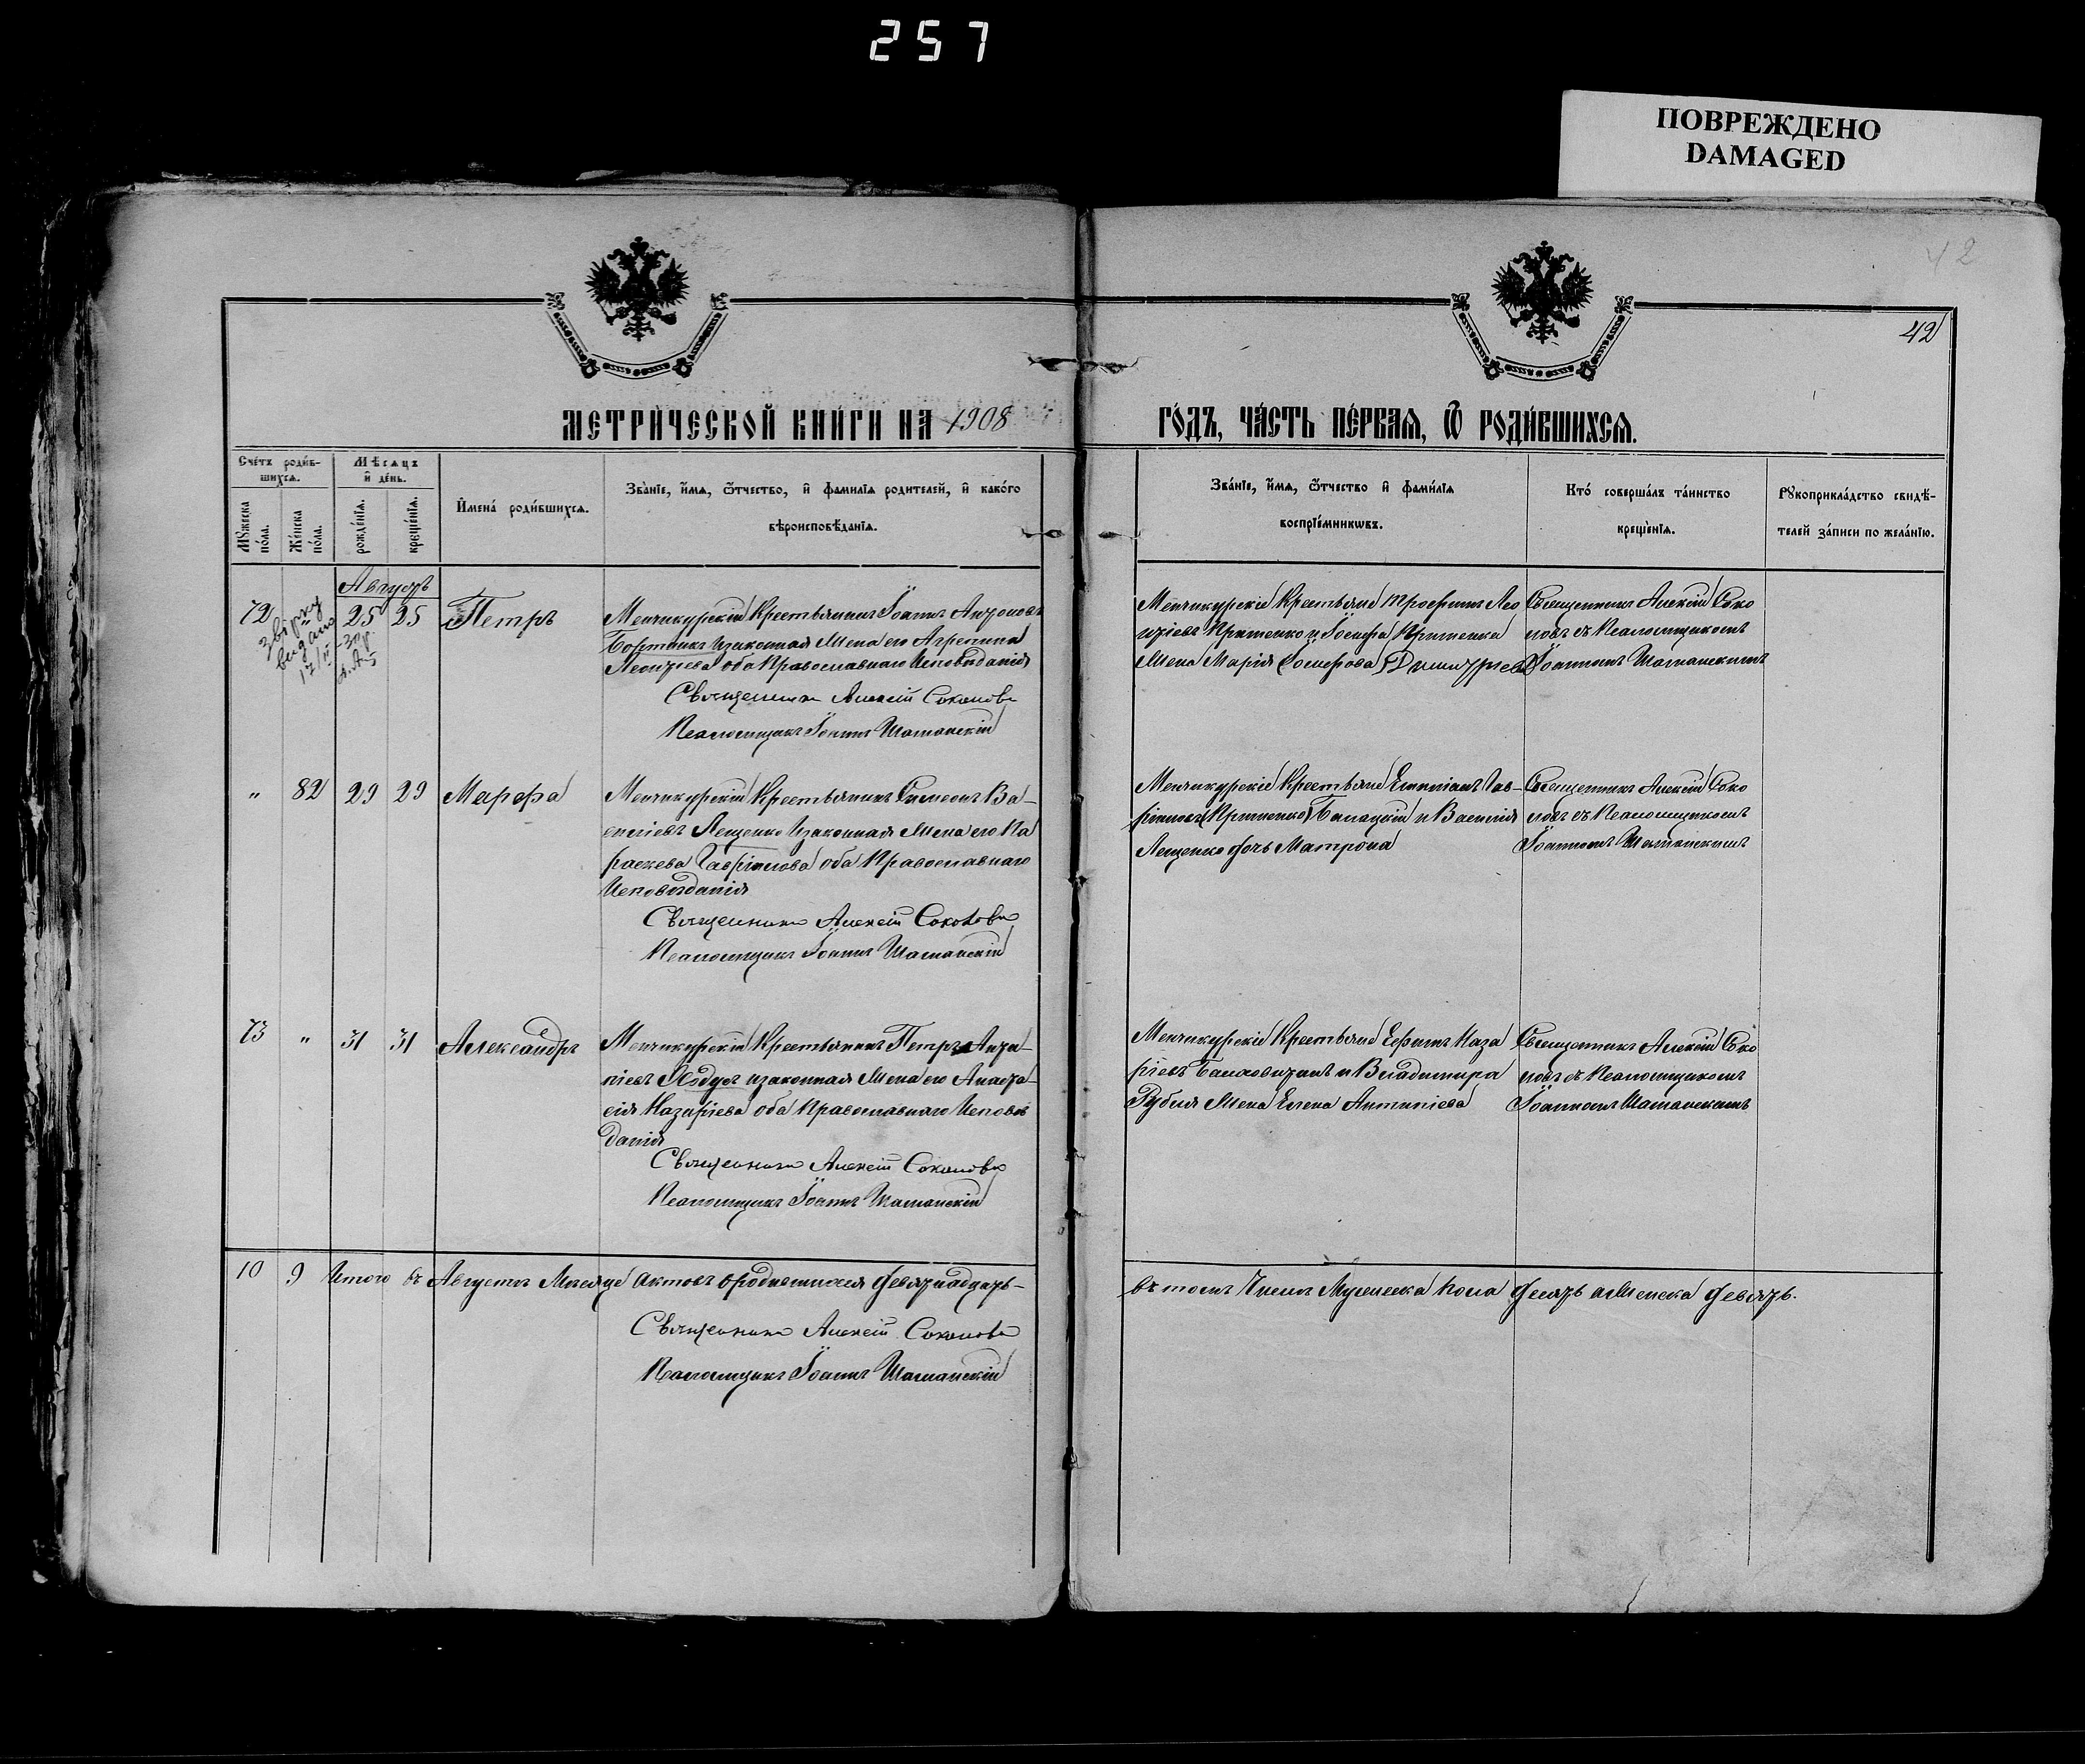 257
ПОВРЕЖДЕНО
DAMAGED
42
42
МЕТРИЧЕСКОЙ КНИГИ НА 1908
ГОДЪ, ЧАСТЬ ПЕРВАЯ, Ѿ РОДИВШИХСЯ.
Счетъ родив-
шихся.
Мужеска пола.
Женска пола.
Мѣсяцъ
и день.
рожденія.
крещенія.
Имена родившихся.
Званіе, имя, ѿтчество, и фамилія родителей, и какого
вѣроисповѣданія.
Званіе, имя, ѿтчество и фамилія
воспріемниковъ.
Кто совершалъ таинство
крещенія.
Рукоприкладство свидѣ-
телей записи по желанію.
Августъ
72 25 25 Петръ
видано
Менчикурскій Крестьянинъ Іоаннъ
Бортникъ и законная Жена его Агрепина
Леонтіева оба Православнаго Исповѣданія
Священникъ Алексій Соколовъ
Псаломщикъ Іоаннъ Шаманскій
Менчикурскіе Крестьяне Трофимъ Лео
нтіевъ Притенко и Іосифа Притенка
Жена Марія
Священникъ Алексій Соко
ловъ съ Псаломщикомъ
Іоанномъ Шаманскимъ
" 82 29 29 Марфа
Менчикурскій Крестьянинъ Симеонъ Ва-
силіевъ Лещенко и законная Жена его Па
раскева Гавріилова оба Православнаго
Исповѣданія
Священникъ Алексій Соколовъ
Псаломщикъ Іоаннъ Шаманскій
Менчикурскіе Крестьяне Емиліанъ Гав-
ріиловъ и Василія
Лещенко дочь Матрона
Священникъ Алексій Соко
ловъ съ Псаломщикомъ
Іоанномъ Шаманскимъ
73 " 31 31 Александръ
Менчикурскій Крестьянинъ Петръ
и законная Жена его Анаста-
сія Назаріева оба Православнаго Исповѣ
данія
Священникъ Алексій Соколовъ
Псаломщикъ Іоаннъ Шаманскій
Менчикурскіе Крестьяне Ефимъ Наза
ріевъ и Владимира
Жена Елена Антипіева
Священникъ Алексій Соко
ловъ съ Псаломщикомъ
Іоанномъ Шаманскимъ
10 9 Итого въ Августѣ Мѣсяцѣ актовъ о родившихся девятнадцать-
въ томъ Числѣ Мужеска пола десять а Женска девять.
Священникъ Алексій Соколовъ
Псаломщикъ Іоаннъ Шаманскій